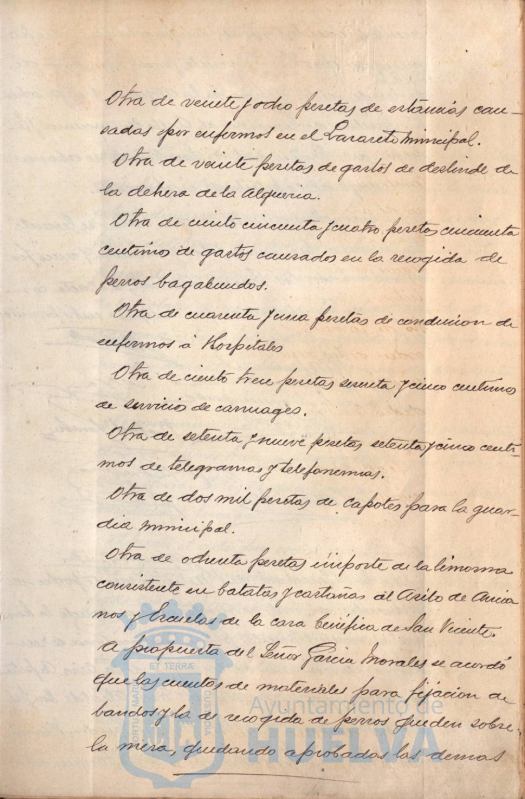 Otra de veinte y ocho pesetas de estancias cau-
sadas por enfermos en el Lazareto municipal.
Otra de veinte pesetas de gastos de deslinde de
la dehesa de la Alqueria.
Otra de ciento cincuenta y cuatro pesetas cincuenta
centimos de gastos causados en la recogida de
perros bagabundos.
Otra de cuarenta y una pesetas de conduccion de
enfermos á Hospitales
Otra de ciento trece pesetas sesenta y cinco centimos
de servicio de carruages.
Otra de setenta y nueve pesetas setenta y cinco centi-
mos de telegramas y telefonemas.
Otra de dos mil pesetas de capotes para la guar-
dia municipal.
Otra de ochenta pesetas importe de la limosna
consistente en batatas y castañas al Asilo de Ancia
nos y Escuelas de la casa benéfica de San Vicente.
A propuesta del Señor Garcia Morales se acordó
que las cuentas de materiales para fijacion de
bandos y la de recogida de perros queden sobre
la mesa, quedando aprobadas las demas
PORTUS MARIS ET TERRAE CUSTODIA
Ayuntamiento de
HUELVA